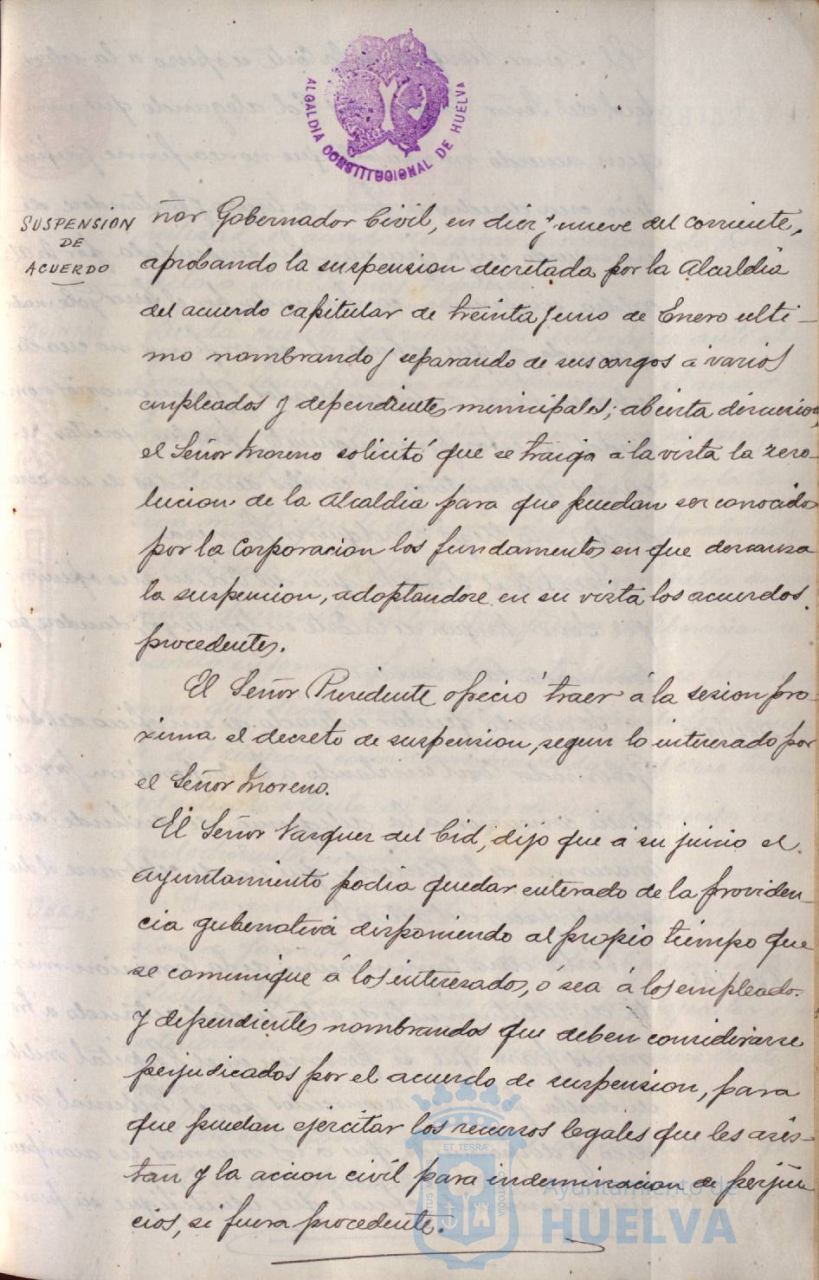 ALCALDIA CONSTITUCIONAL DE HUELVA
SUSPENSION
DE
ACUERDO
ñor Gobernador Civil, en diez y nueve del corriente,
aprobando la suspension decretada por la Alcaldia
del acuerdo capitular de treinta y uno de Enero ulti-
mo nombrando y separando de sus cargos á varios
empleados y dependientes municipales; abierta discusion,
el Señor Moreno solicitó que se traiga á la vista la reso-
lucion de la Alcaldia para que puedan ser conocidos
por la Corporacion los fundamentos en que descansa
la suspension, adoptandose en su vista los acuerdos
procedentes.
El Señor Presidente ofreció traer á la sesion pro-
xima el decreto de suspension, segun lo interesado por
el Señor Moreno.
El Señor Vazquez del Cid, dijo que á su juicio el
Ayuntamiento podia quedar enterado de la providen-
cia gubernativa disponiendo al propio tiempo que
se comunique á los interesados, ó sea á los empleados
y dependientes nombrandos que deben considerarse
perjudicados por el acuerdo de suspension, para
que puedan ejercitar los recursos legales que les asis-
tan y la accion civil para indemnizacion de perjui-
cios, si fuera procedente.
ET TERRA
Ayuntamiento de
HUELVA